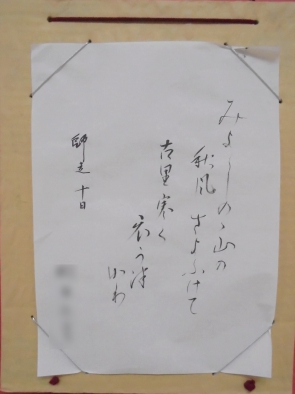 みよしのゝ山の
秋風 さよふけて
古里寒く
衣うつ
師走 十日